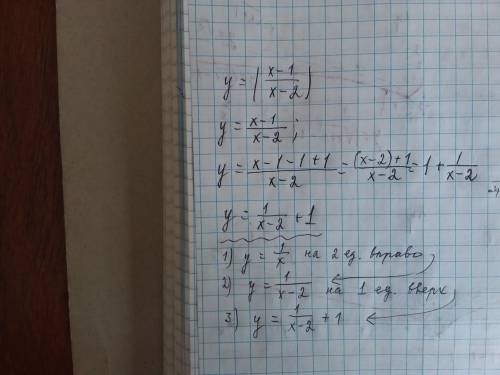 y = (x-1/x-2)
y = x-1/x-2 ;
y = x-1-1+1/x-2 = (x-2)+1/x-2 = 1 + 1/x-2
y = 1/x-2 + 1
1) y = 1/x на 2 ед. вправо
2) y = 1/x-2 на 1 ед. вверх
3) y = 1/x-2 + 1